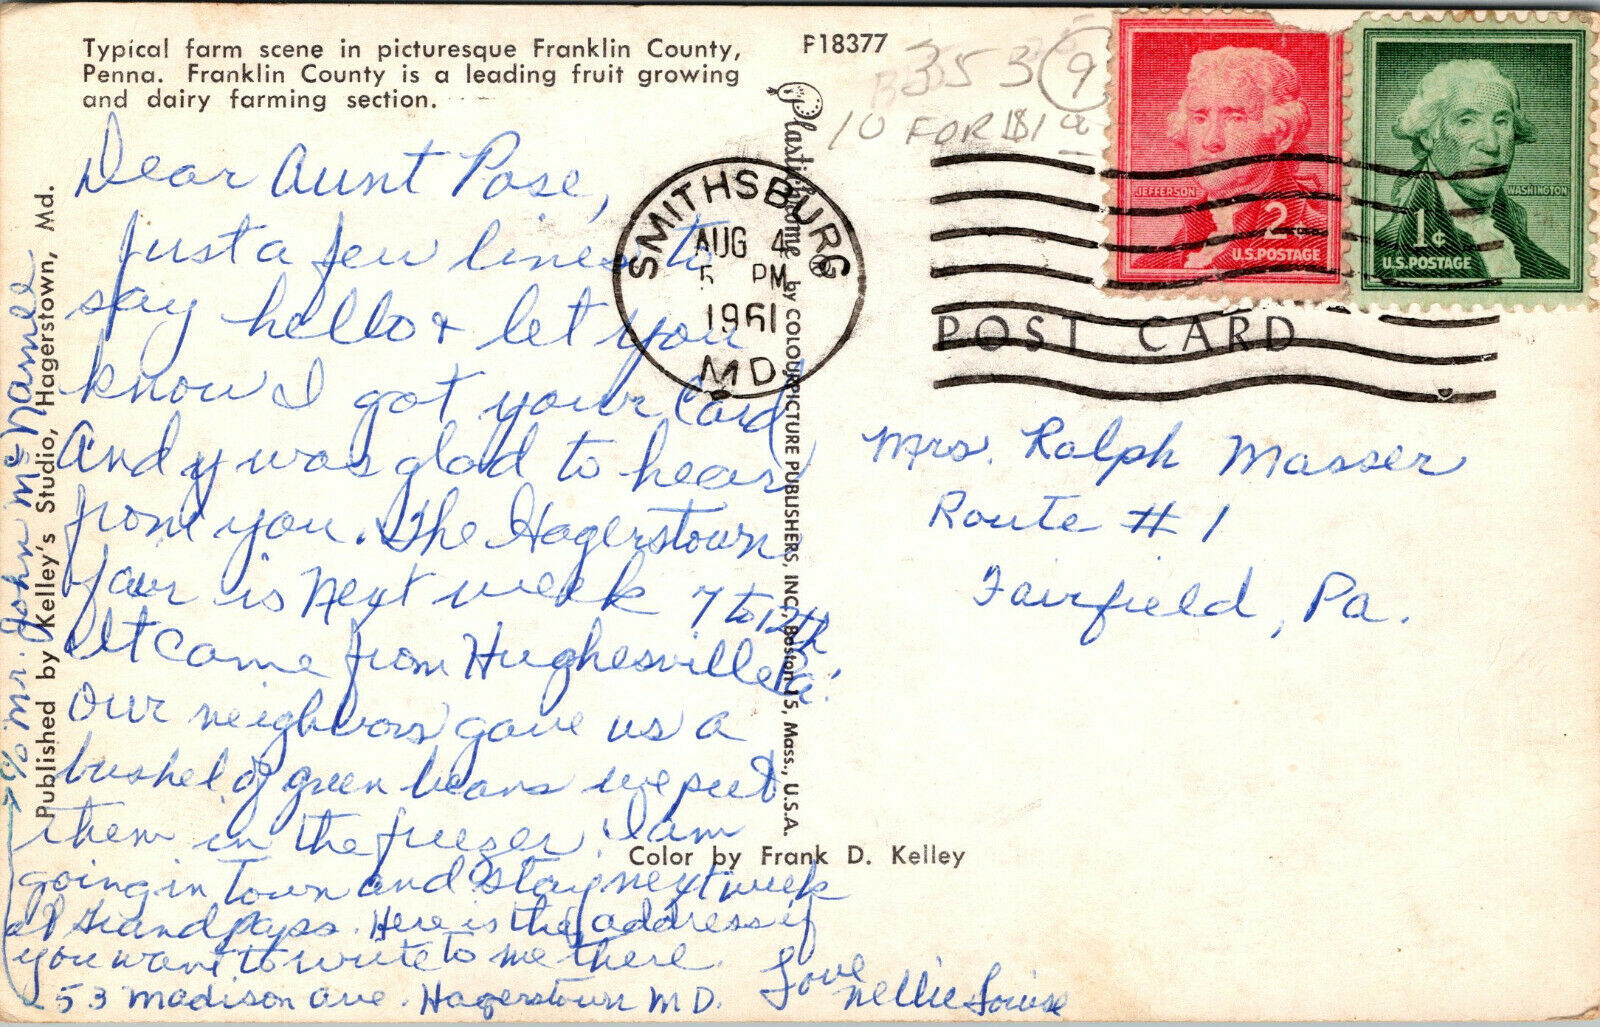 Typical farm scene in picturesque Franklin County,
Penna. Franklin County is a leading fruit growing
and dairy farming section.
F18377
353 9
10 FOR $1
JEFFERSON
2¢
U.S. POSTAGE
WASHINGTON
1¢
U.S. POSTAGE
SMITHSBURG
AUG 4
5 PM
1961
MD.
POST CARD
Dear Aunt Rose,
Just a few lines to
say hello & let you
know I got your card
And I was glad to hear
from you. The Hagerstown
fair is next week 7 to 12th
It came from Hughesville Pa.
Our neighbors gave us a
bushel of green beans we put
them in the freezer. I am
going in town and stay next week
at Grandpaps. Here is the address if
you want to write to me there.
53 Madison Ave. Hagerstown MD.
c/o Mr. John McNamee
Love
Nellie Louise
Mrs. Ralph Masser
Route #1
Fairfield, Pa.
Published by Kelley's Studio, Hagerstown, Md.
Plastichrome ® by COLOURPICTURE PUBLISHERS, INC., Boston 15, Mass., U.S.A.
Color by Frank D. Kelley